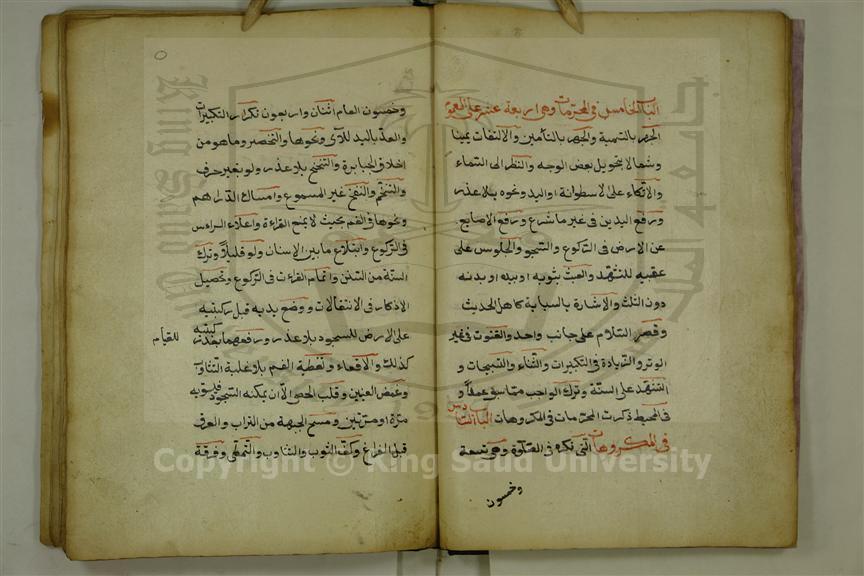 الباب الخامس في المحرمات وهي اربعة عشر على العمو
الجهر بالتسمية والجهر بالتامين والالتفات يمينا
وشمالا بتحويل بعض الوجه والنظر الى السماء
والاتكاء على الاسطوانة او اليد ونحوه بلا عذر
ورفع اليدين في غير ما شرع ورفع الاصابع
عن الارض في الركوع والسجود والجلوس على
عقبيه للتشهد والعبث بثوبه او بيده او بدنه
دون الثلث والاشارة بالسبابة كاهل الحديث
وقصر السلام على جانب واحد والقنوت في غير
الوتر والزيادة في التكبيرات والثناء والتسبيحات و
التشهد على السنة وترك الواجب مما سبق عملا و
في المحيط ذكرت المحرمات في المكروهات الباب السادس
في المكروهات التي تكره في الصلوة وهي تسعة
وخمسون
وخمسون العام اثنان واربعون تكرار التكبيرات
والعد باليد للآي ونحوها والتخصر وما هو من
اخلاق الجبابرة والتنحنح بلا عذر ولو تغير حرف
والتنخم والنفخ غير المسموع وامساك الدراهم
ونحوها في الفم بحيث لا يمنع القراءة واعلاء الرأس
في الركوع وابتلاع ما بين الاسنان ولو قليلا وترك
السنة من السنن واتمام القراءت في الركوع وتحصيل
الاذكار في الانتقالات ووضع يديه قبل ركبتيه
على الارض للسجود بلا عذر ورفعهما بعد ركبتيه
للقيام
كذلك والاقعاء وتغطية الفم بلا غلبة التثاوب
وغمض العينين وقلب الحصى الا ان يمكنه السجود فيسويه
مرة او مرتين ومسح الجبهة من التراب والعرق
قبل الفراغ وكف الثوب والتثاوب والتمطي وفرقة
Copyright © King Saud University